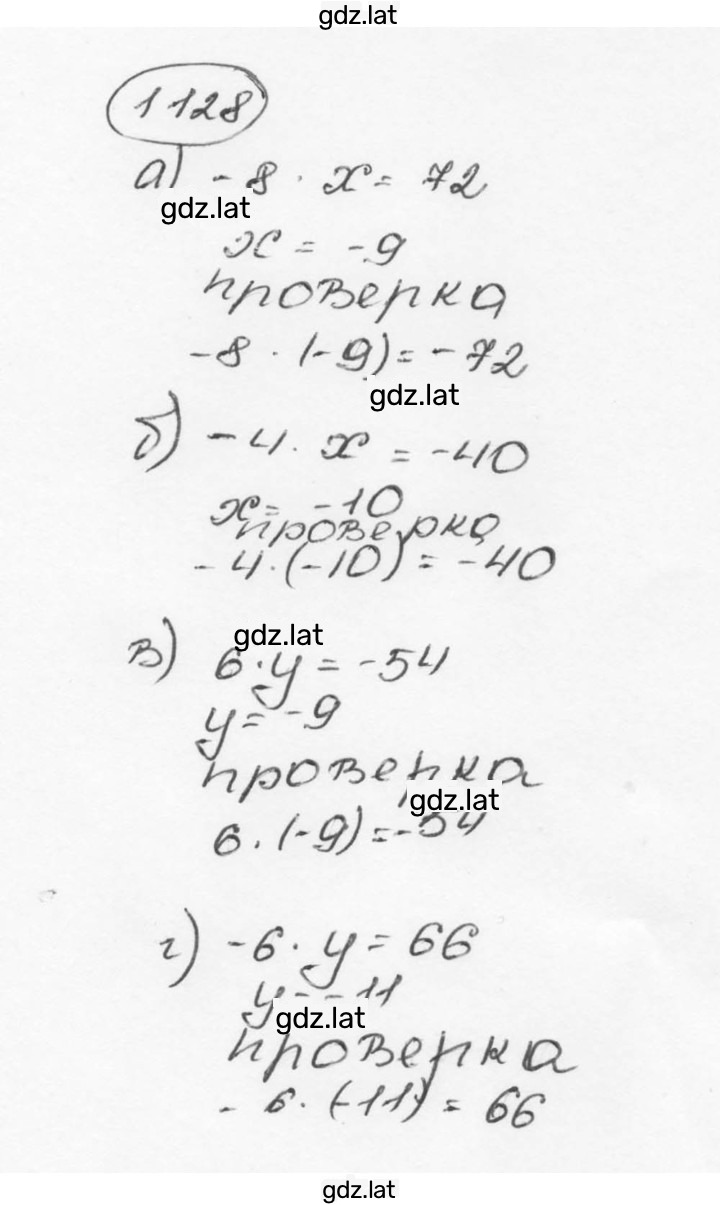 gdz.lat
1128
а) -8 · x = 72
gdz.lat
x = -9
проверка
-8 · (-9) = -72
gdz.lat
б) -4 · x = -40
x = -10
проверка
-4 · (-10) = -40
gdz.lat
в) 6 · y = -54
y = -9
проверка
gdz.lat
6 · (-9) = -54
г) -6 · y = 66
y = -11
gdz.lat
проверка
-6 · (-11) = 66
gdz.lat